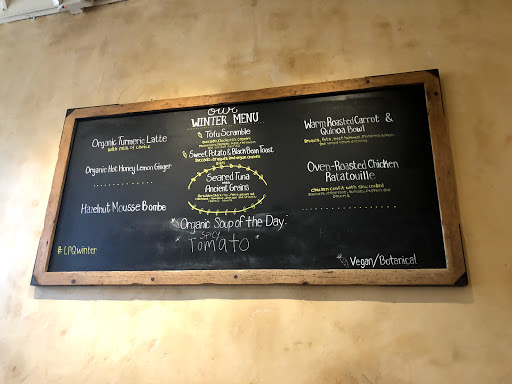 our
WINTER MENU
Organic Turmeric Latte
with milk of choice
Organic Hot Honey Lemon Ginger
Hazelnut Mousse Bombe
#LPQwinter
Tofu Scramble
Sweet Potato & Black Bean Toast
Seared Tuna
Ancient Grains
Organic Soup of the Day:
SPICY
TOMATO
Warm Roasted Carrot &
Quinoa Bowl
Oven-Roasted Chicken
Ratatouille
chicken confit with slow cooked
Vegan/Botanical